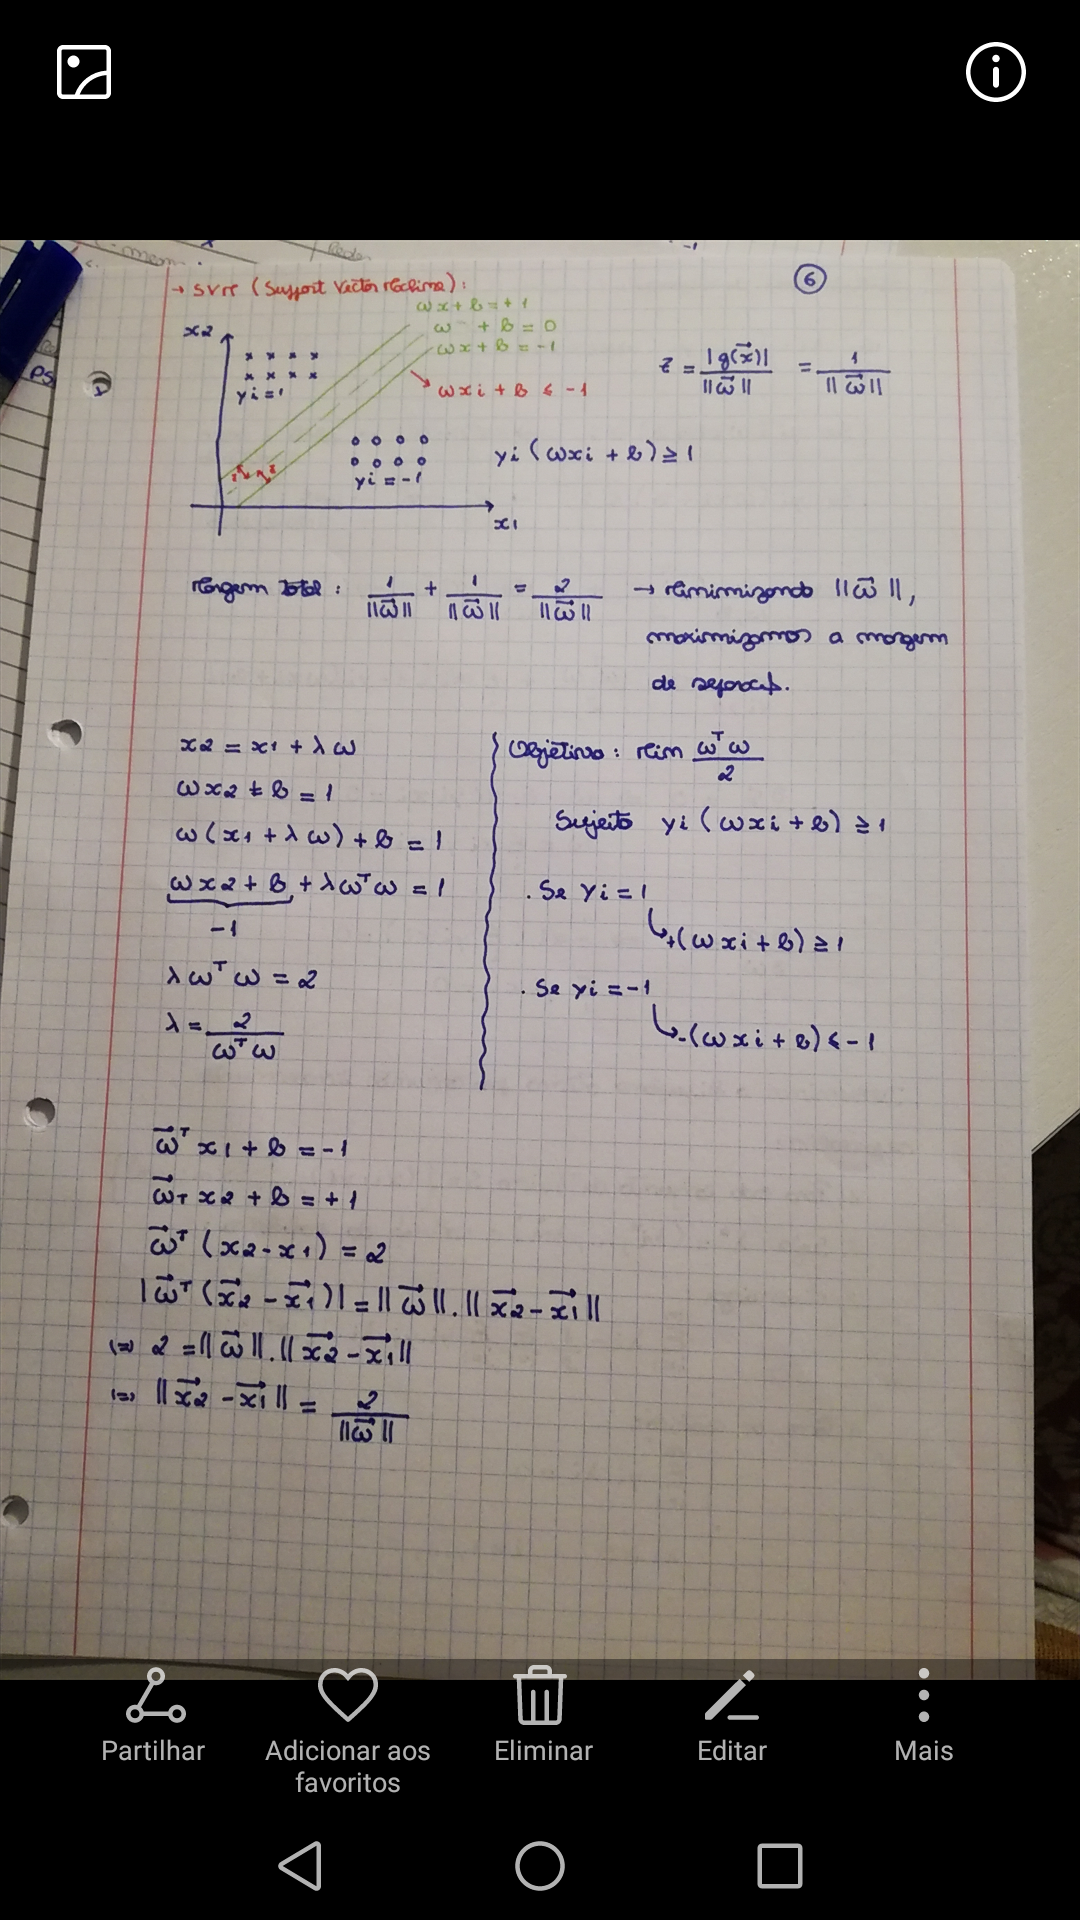 → SVM (Support Vector Machine):
6
wx + b = + 1
w + b = 0
wx + b = -1
wxi + b ≤ -1
x2
yi = 1
yi = -1
x1
z = |g(x⃗)| / ||w⃗|| = 1 / ||w⃗||
yi (wxi + b) ≥ 1
Margem Total: 1/||w⃗|| + 1/||w⃗|| = 2/||w⃗|| → Minimizando ||w⃗||,
maximizamos a margem
de separação.
x2 = x1 + λw
wx2 + b = 1
w(x1 + λw) + b = 1
wx2 + b + λwᵀw = 1
-1
λwᵀw = 2
λ = 2 / wᵀw
Objetivo: Min wᵀw / 2
Sujeito yi (wxi + b) ≥ 1
. Se yi = 1
+(wxi + b) ≥ 1
. Se yi = -1
-(wxi + b) ≤ -1
w⃗ᵀ x1 + b = -1
w⃗ᵀ x2 + b = +1
w⃗ᵀ (x2 - x1) = 2
|w⃗ᵀ (x⃗2 - x⃗1)| = ||w⃗|| . ||x⃗2 - x⃗1||
(=) 2 = ||w⃗|| . ||x⃗2 - x⃗1||
(=) ||x⃗2 - x⃗1|| = 2 / ||w⃗||
Partilhar
Adicionar aos favoritos
Eliminar
Editar
Mais